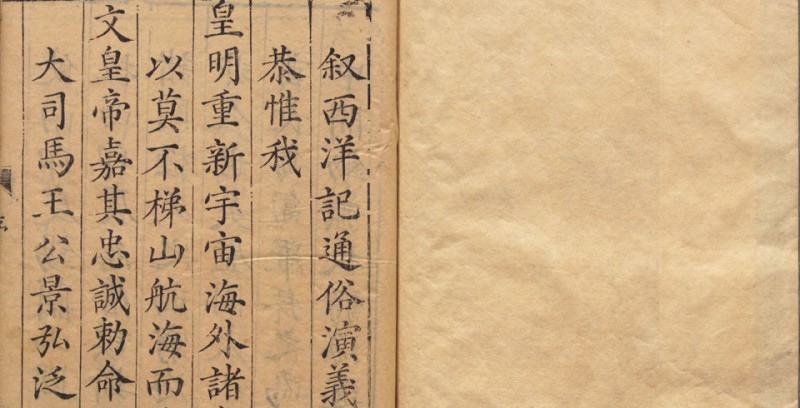 叙西洋記通俗演義
恭惟我
皇明重新宇宙海外諸
以莫不梯山航海而
文皇帝嘉其忠誠勅命
大司馬王公景弘泛